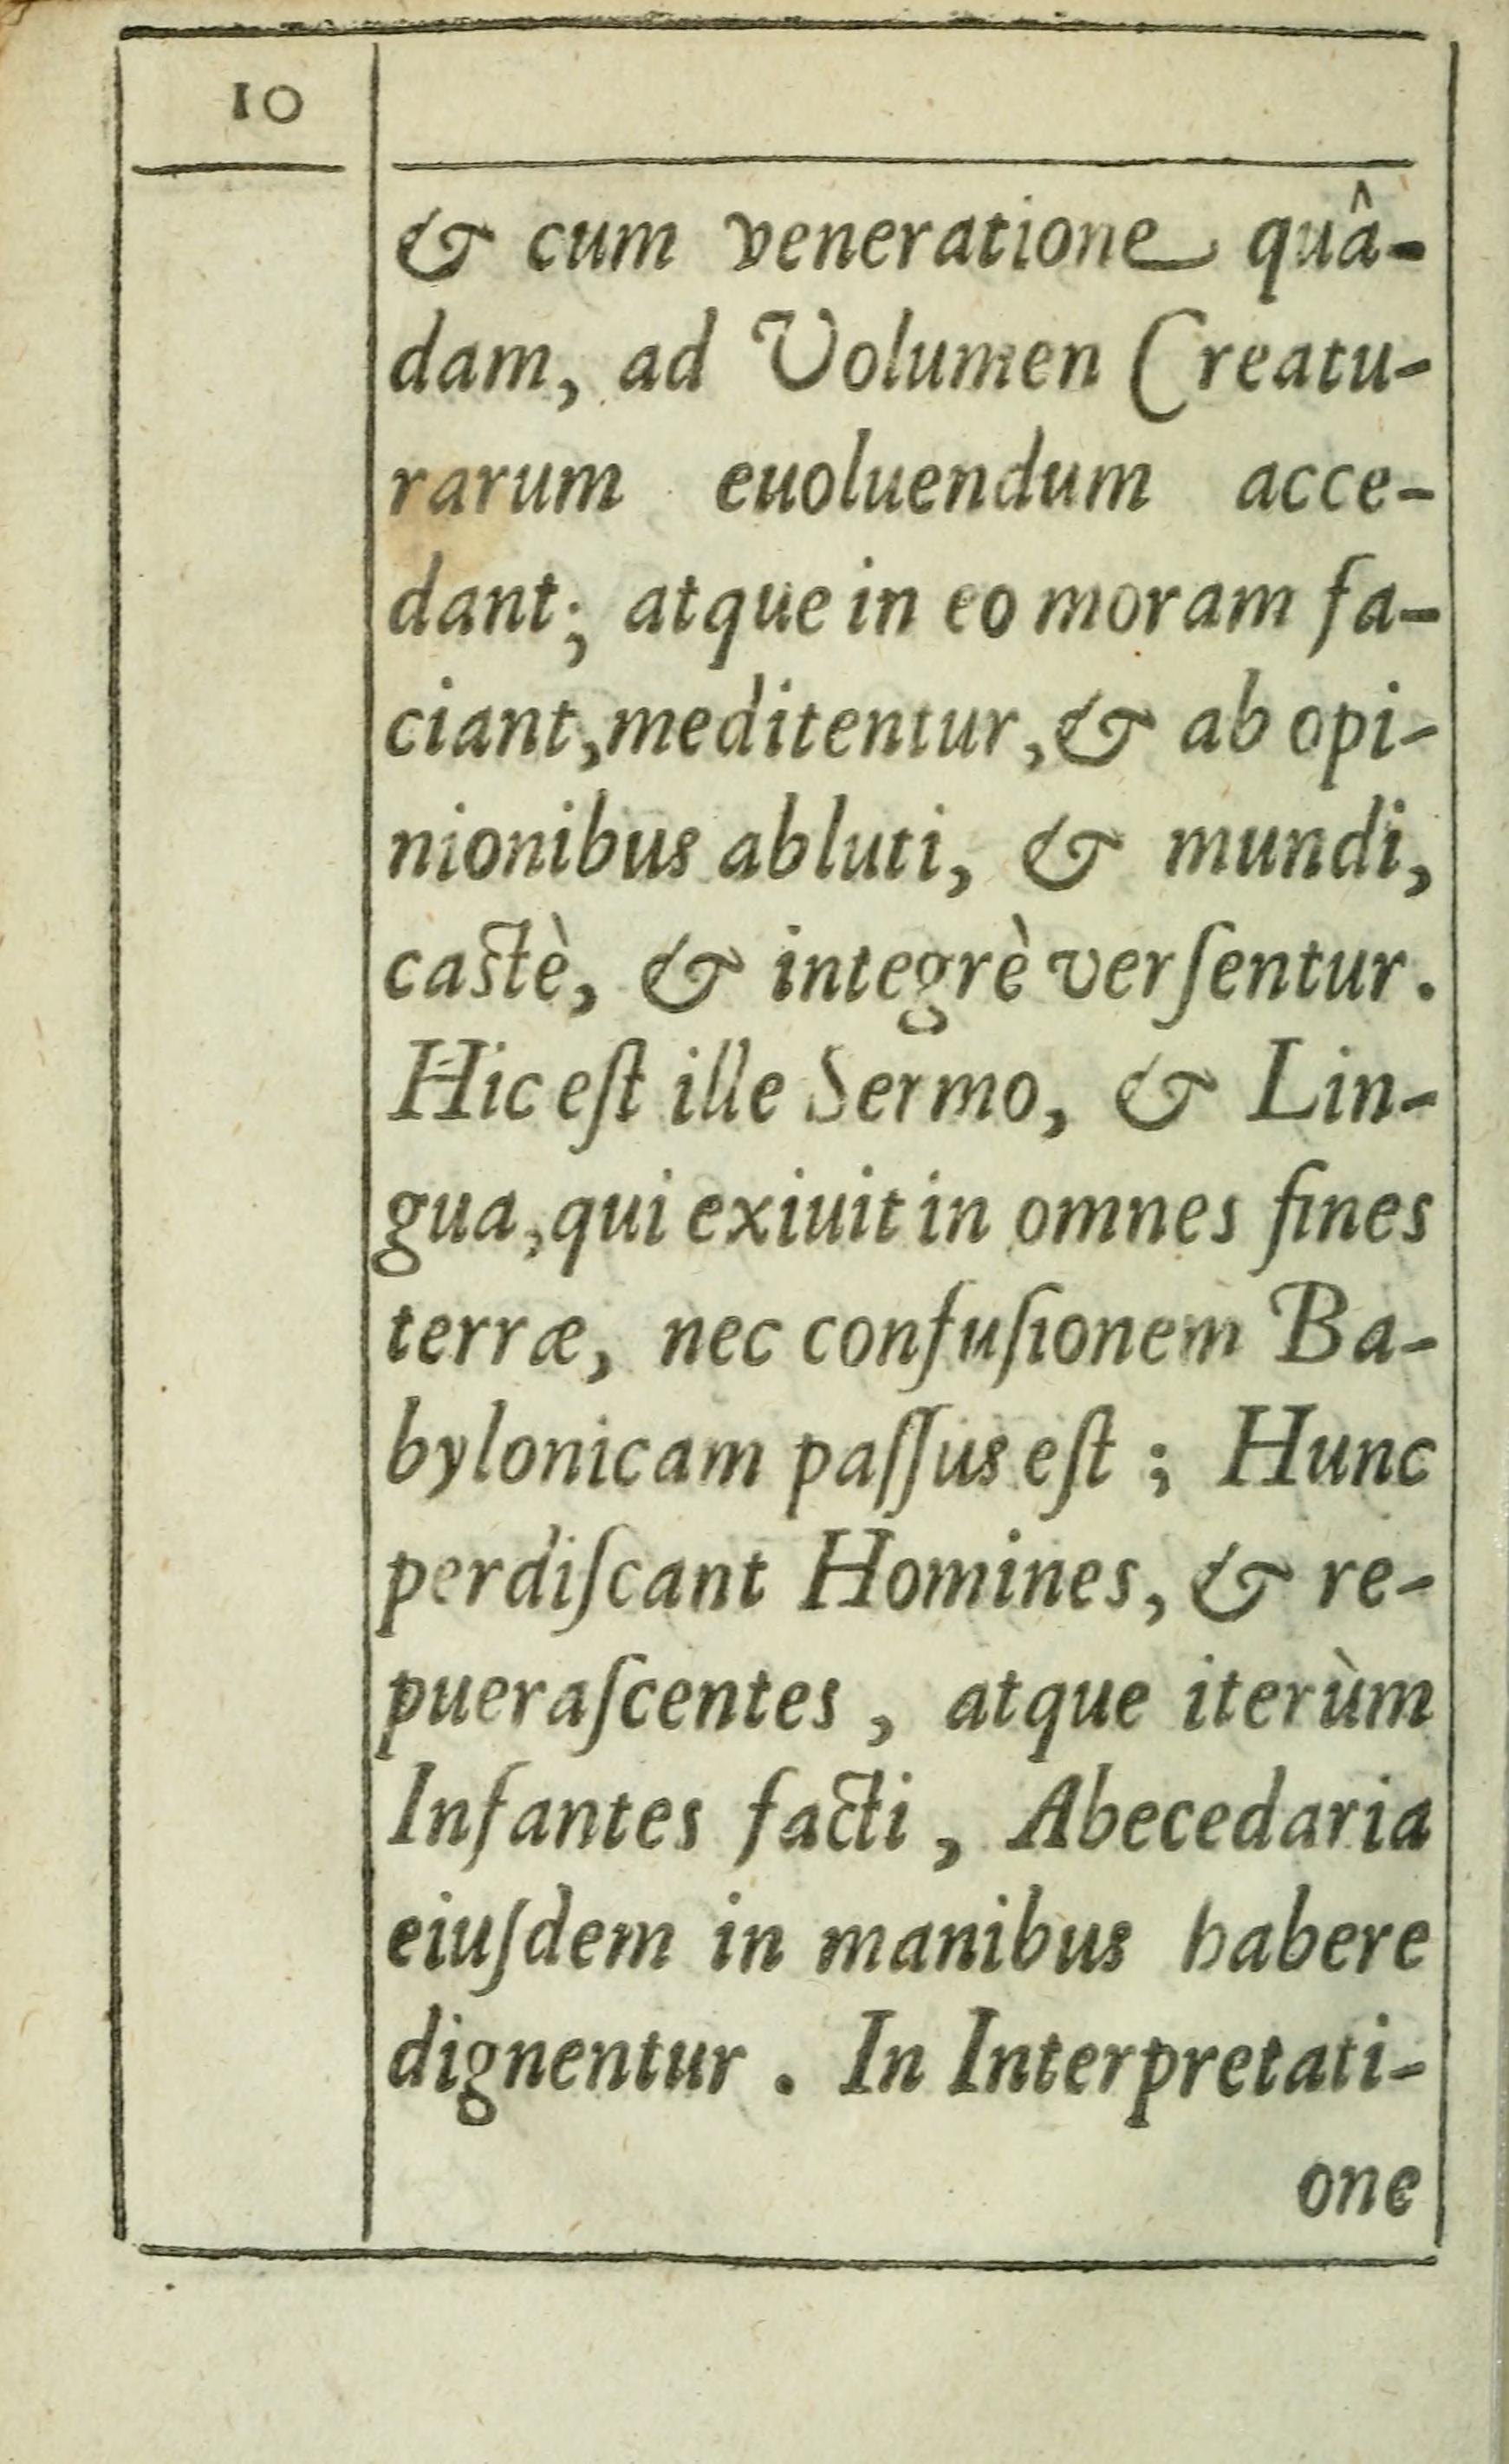 10
& cum veneratione quâ-
dam, ad Volumen Creatu-
rarum euoluendum acce-
dant; atque in eo moram fa-
ciant, meditentur, & ab opi-
nionibus abluti, & mundi,
castè, & integrè verſentur.
Hic eſt ille Sermo, & Lin-
gua, qui exiuit in omnes fines
terræ, nec confuſionem Ba-
bylonicam paſſus eſt; Hunc
perdiſcant Homines, & re-
pueraſcentes, atque iterùm
Infantes facti, Abecedaria
eiuſdem in manibus habere
dignentur. In Interpretati-
one